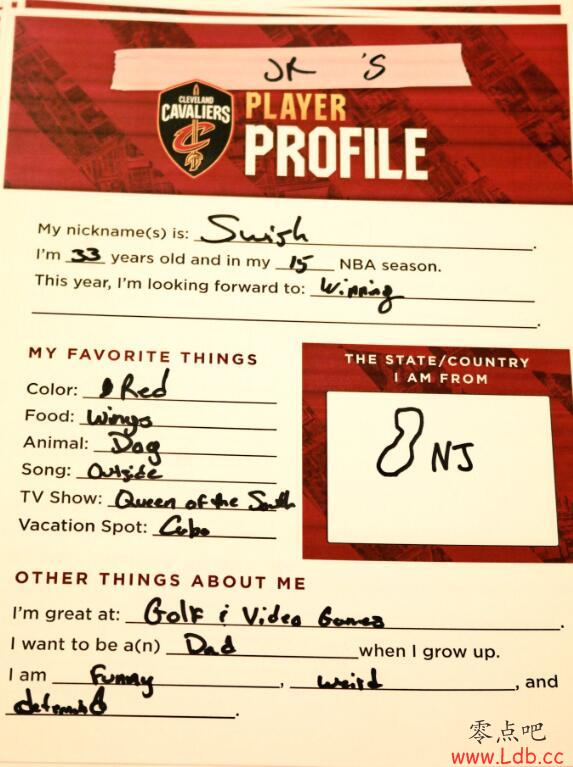 JR 'S
CLEVELAND
CAVALIERS
PLAYER
PROFILE
My nickname(s) is: Swish.
I'm 33 years old and in my 15 NBA season.
This year, I'm looking forward to: Winning
MY FAVORITE THINGS
Color: Red
Food: Wings
Animal: Dog
Song: Outside
TV Show: Queen of the South
Vacation Spot: Cabo
THE STATE/COUNTRY
I AM FROM
NJ
OTHER THINGS ABOUT ME
I'm great at: Golf & Video Games.
I want to be a(n) Dad when I grow up.
I am Funny, weird, and
.
零点吧
www.Ldb.cc